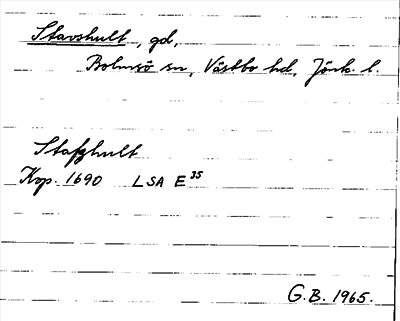 Stavshult, gd,
Bolmsö sn, Västbo hd, Jönk. l.
Stafzhult
Kop. 1690 LSA E 35
G.B. 1965.